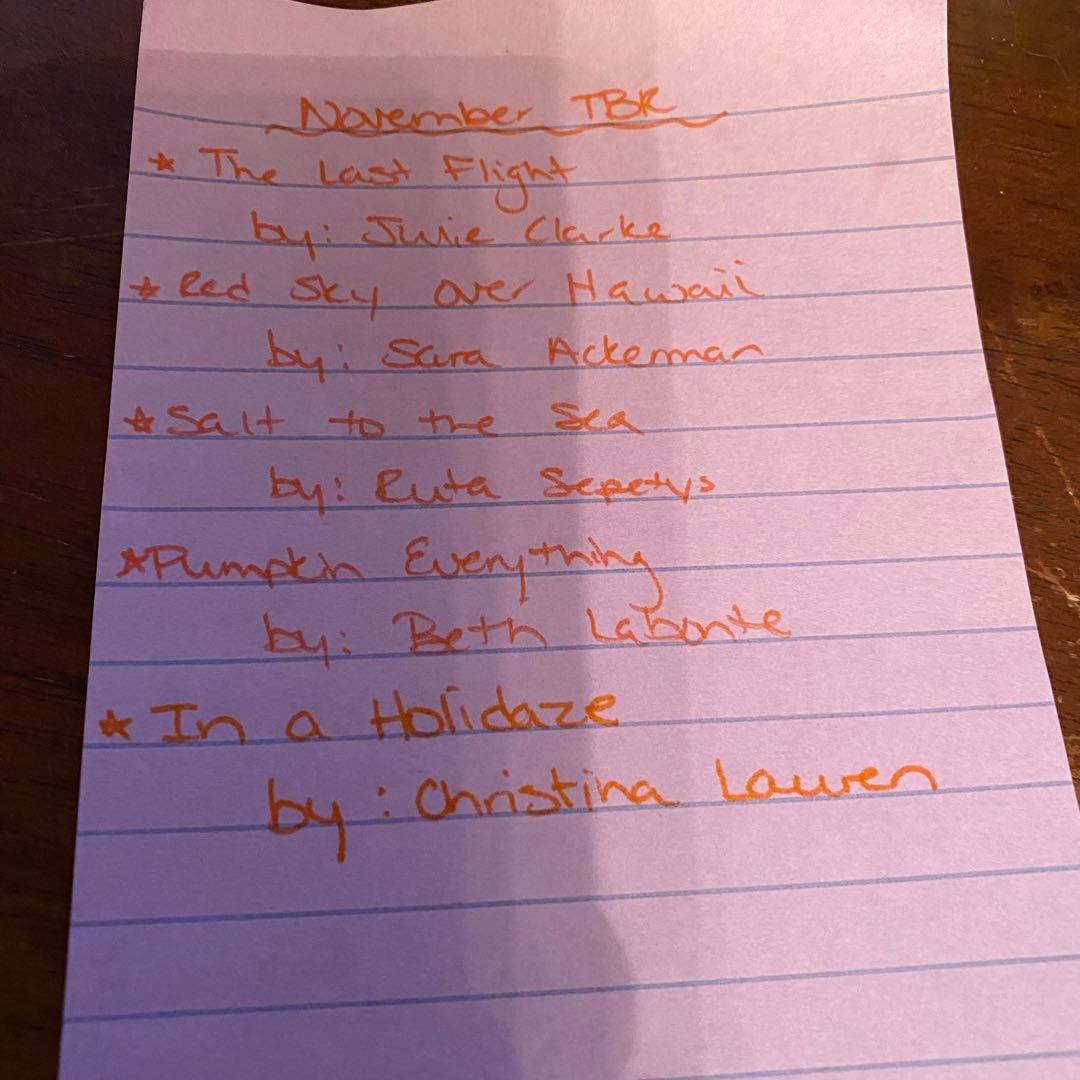 November TBR
★ The Last Flight
by: Julie Clarke
★ Red Sky over Hawaii
by: Sara Ackerman
★ Salt to the Sea
by: Ruta Sepetys
★ Pumpkin Everything
by: Beth Labonte
★ In a Holidaze
by: Christina Lauren